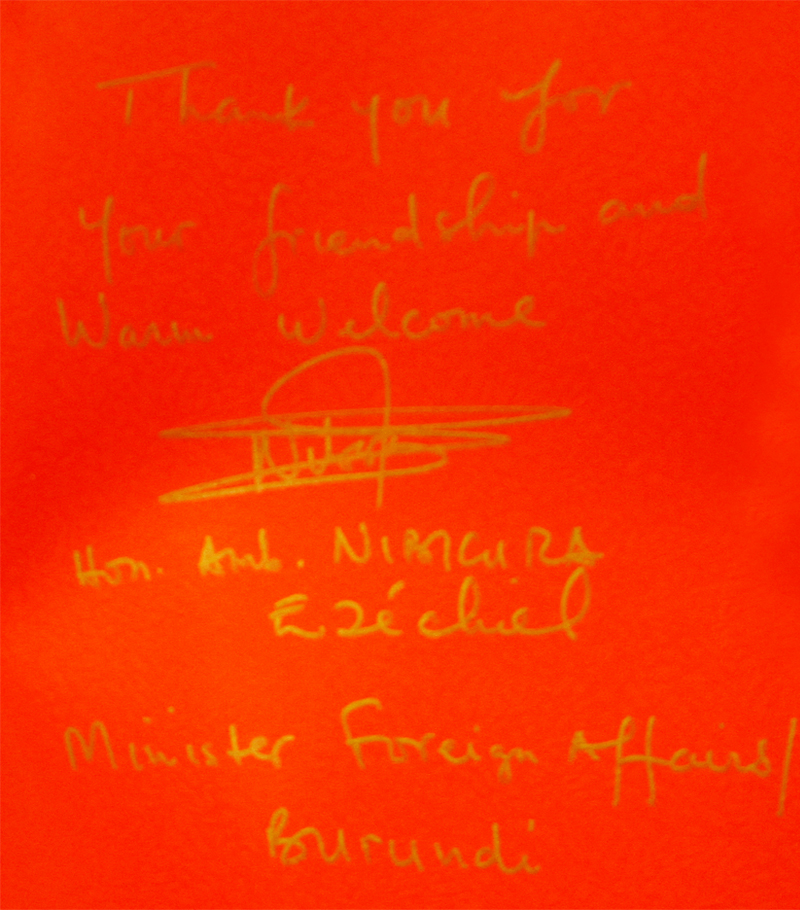 Thank you for
your friendship and
Warm Welcome
Hon. Amb. NIBIGIRA
Ezéchiel
Minister Foreign Affairs/
Burundi